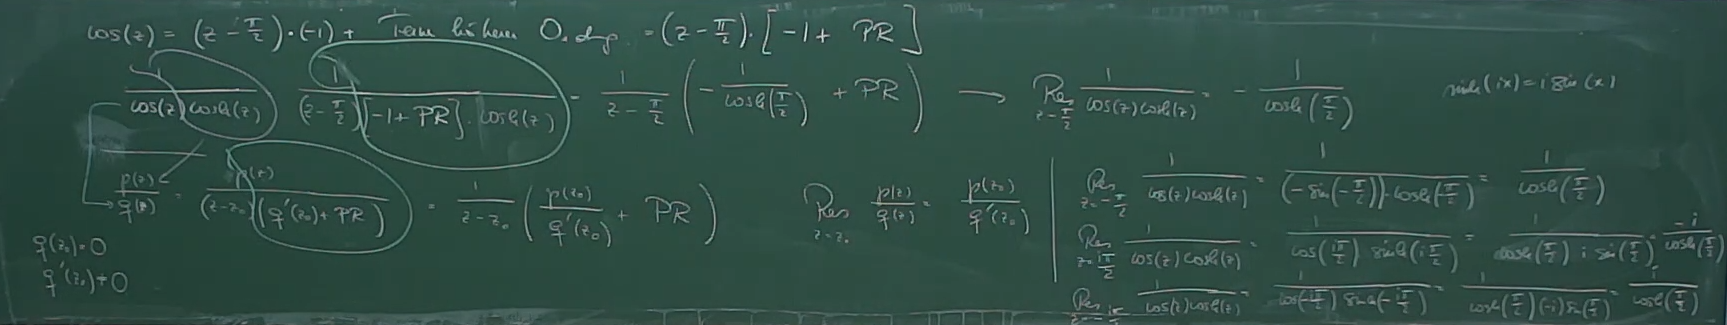 cos(z) = (z - π/2)·(-1) + Terme höherer Ordng = (z - π/2)·[-1 + PR]
1/(cos(z) cosh(z)) = 1/((z - π/2)[-1 + PR]·cosh(z)) = 1/(z - π/2) (-1/cosh(π/2) + PR) → Res z=π/2 1/(cos(z)cosh(z)) = -1/cosh(π/2)
sinh(ix) = i sin(x)
p(z)/q(z) = p(z)/((z-z₀)(q'(z₀) + PR)) = 1/(z-z₀) (p(z₀)/q'(z₀) + PR) Res z=z₀ p(z)/q(z) = p(z₀)/q'(z₀)
q(z₀)=0
q'(z₀)≠0
Res z=-π/2 1/(cos(z)cosh(z)) = 1/((-sin(-π/2))·cosh(-π/2)) = 1/cosh(π/2)
Res z=iπ/2 1/(cos(z)cosh(z)) = 1/(cos(iπ/2) sinh(iπ/2)) = 1/(cosh(π/2) i sin(π/2)) = -i/cosh(π/2)
Res z=-iπ/2 1/(cos(z)cosh(z)) = 1/(cos(-iπ/2) sinh(-iπ/2)) = 1/(cosh(π/2)(-i)sin(π/2)) = i/cosh(π/2)